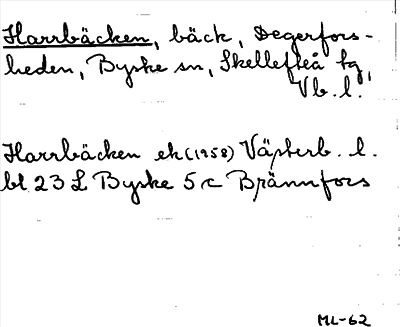 Harrbäcken, bäck, Degerfors-
heden, Byske sn, Skellefteå tg,
Vb. l.
Harrbäcken ek (1958) Västerb. l.
bl 23 L Byske 5 c Brännfors
ML-62